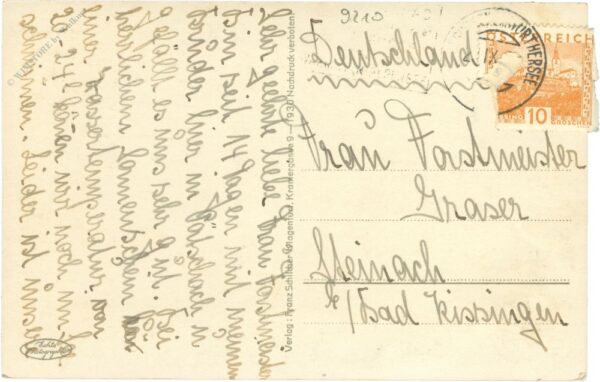 9210
Deutschland
ÖSTERREICH
10
GROSCHEN
WÖRTHERSEE
Frau Forstmeister
Graser
Steinach
b/Bad Kissingen
Sehr geehrte liebe Frau Forstmeister
Bin seit 14 Tagen mit meinem
Bruder hier in Pörtschach u.
gefällt es uns sehr gut. Bei
herrlichem Sonnenschein
einer Wassertemperatur von
22-24° können wir noch
schwimmen. Leider ist unser
Verlag: Franz Schilcher, Klagenfurt, Kramergasse 9 — 1930 Nachdruck verboten
Echte
Photographie